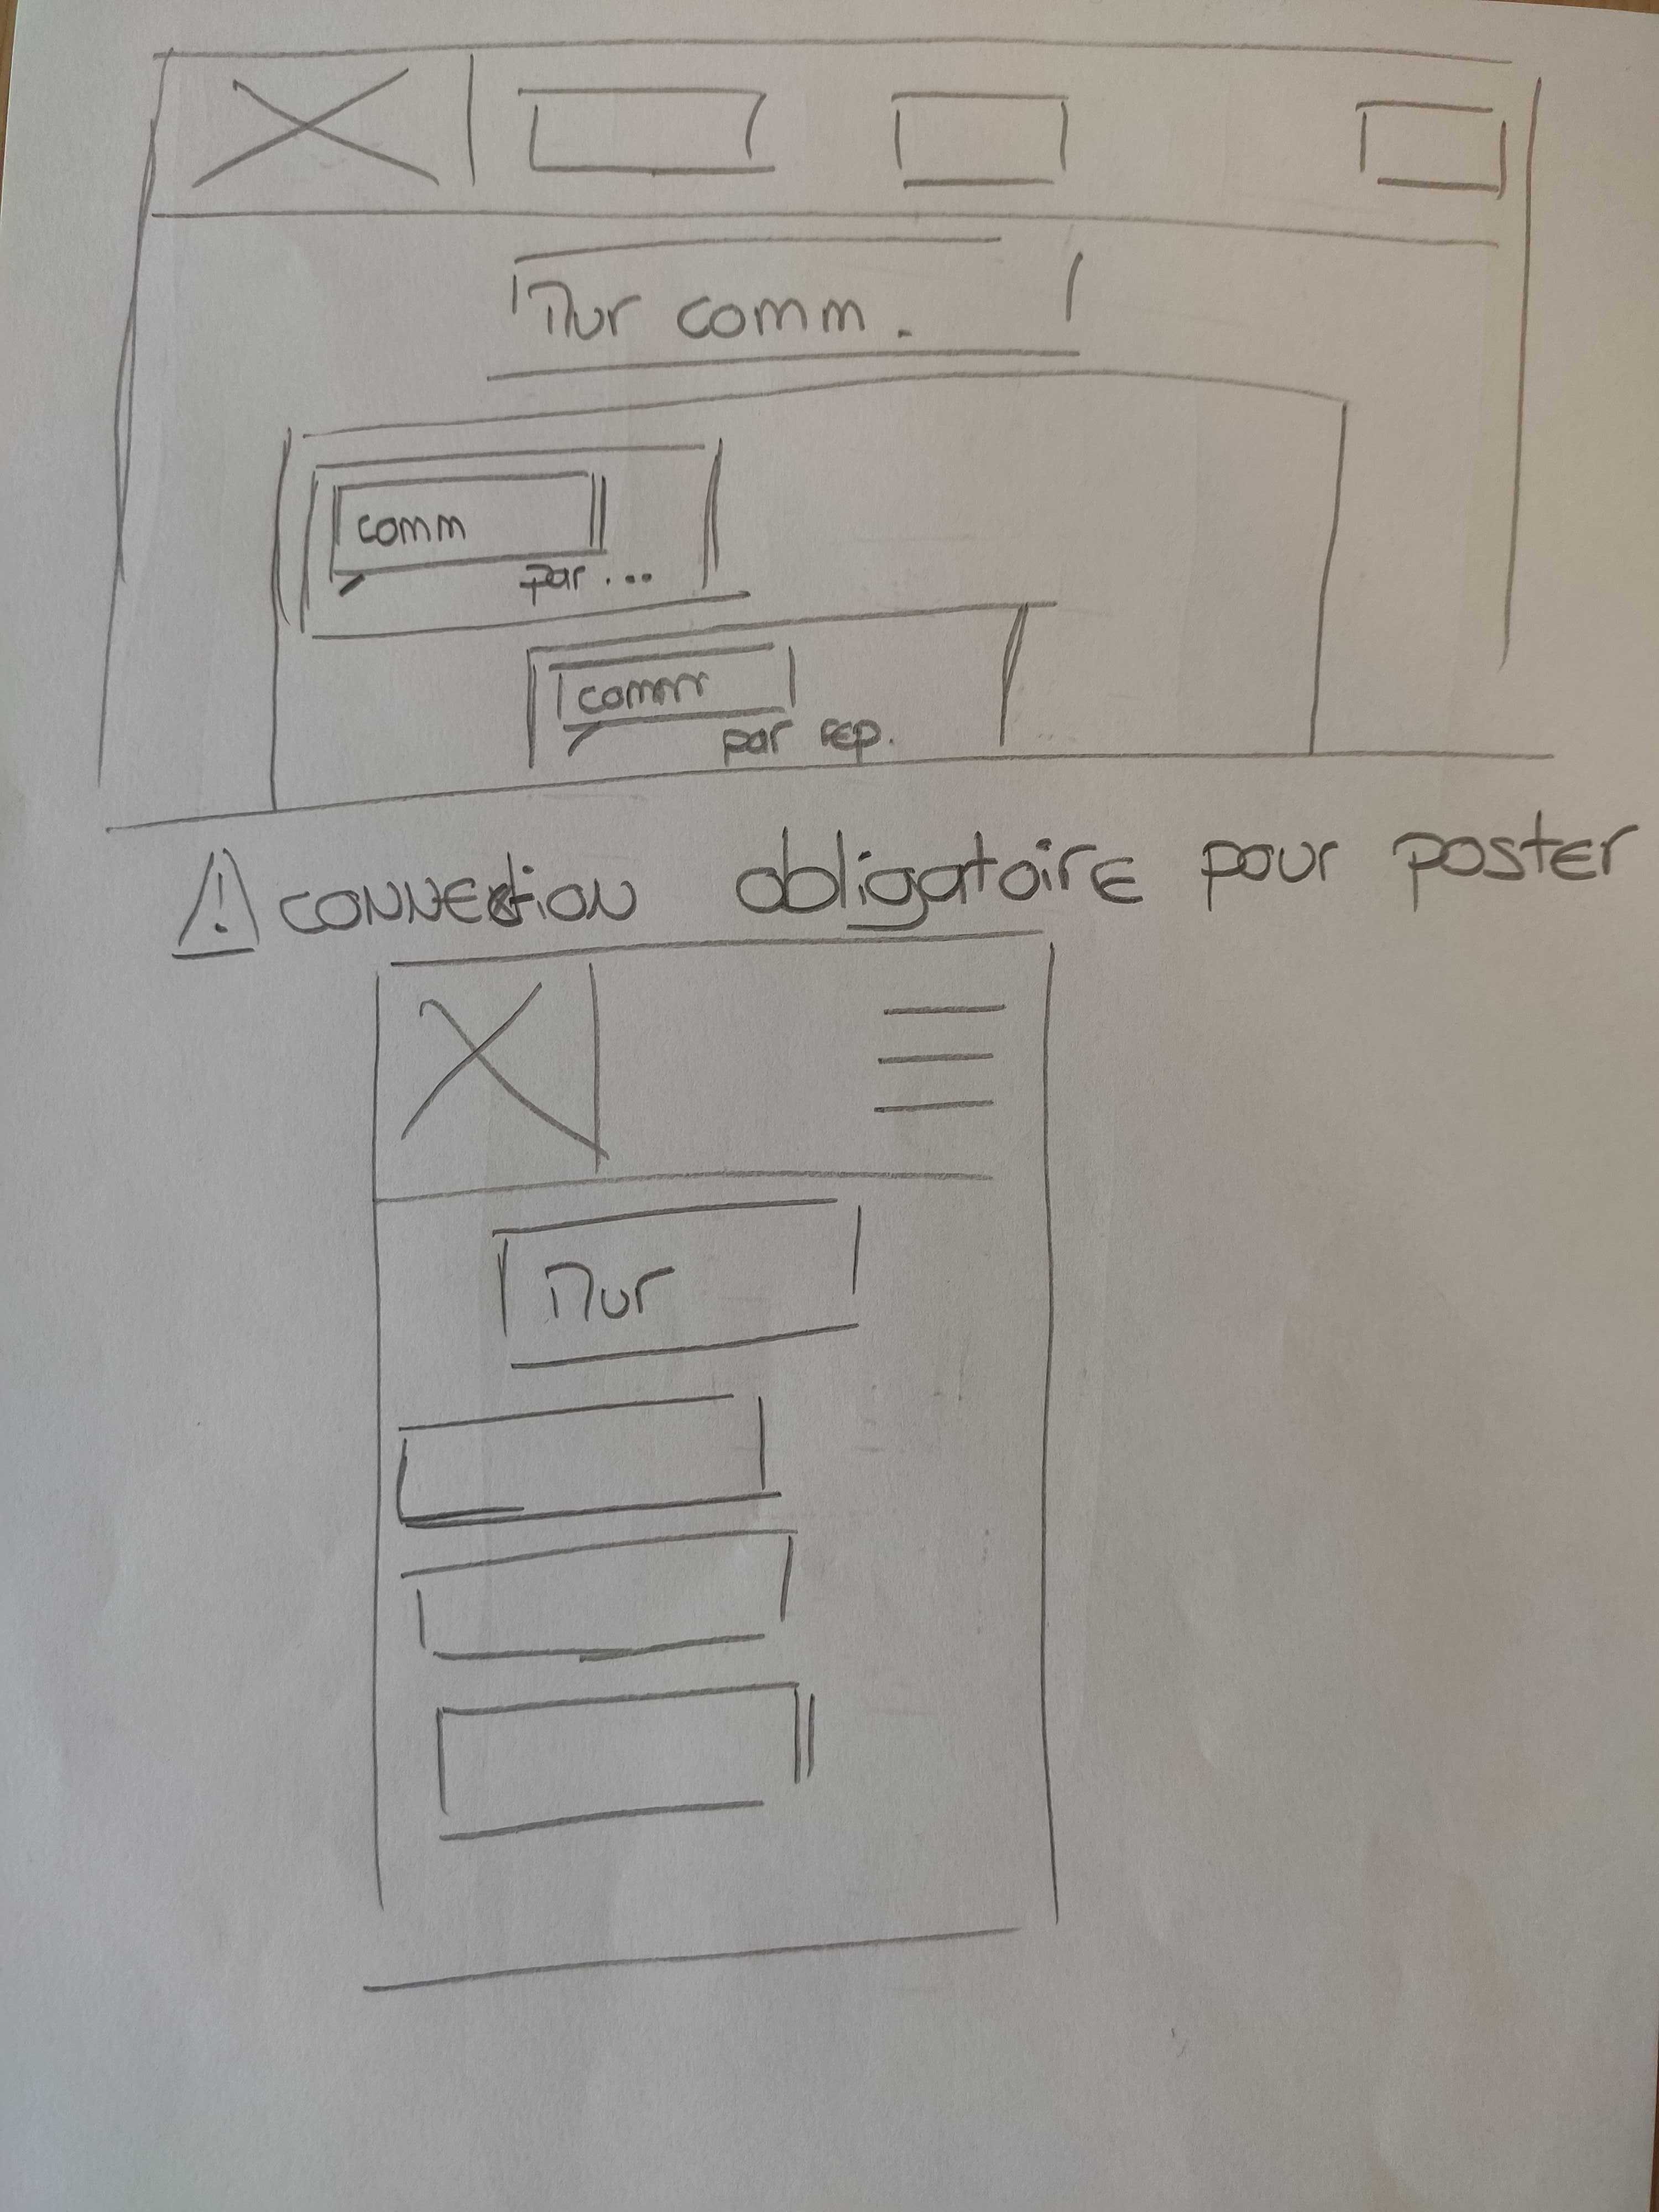 Mur comm.
comm
par ...
comm
par rep.
⚠ connection obligatoire pour poster
Mur